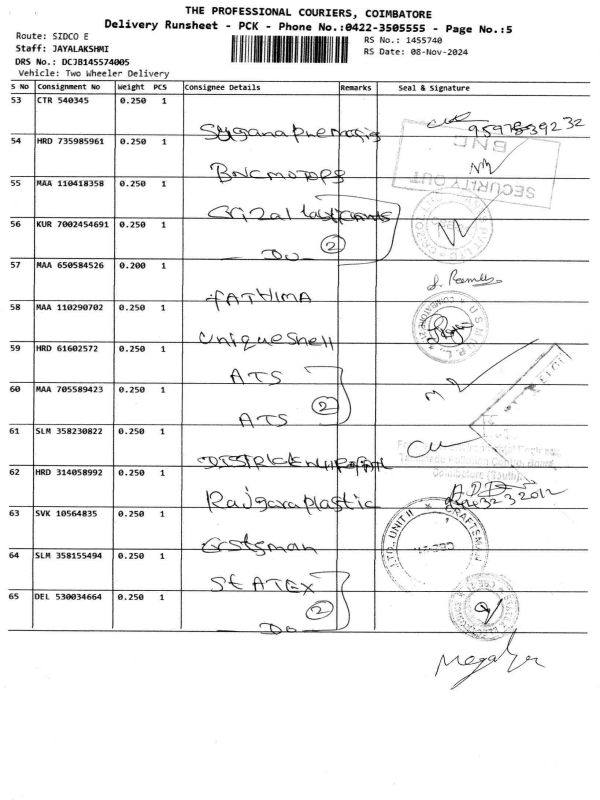 THE PROFESSIONAL COURIERS, COIMBATORE
Delivery Runsheet - PCK - Phone No.:0422-3505555 - Page No.:5
Route: SIDCO E
RS No.: 1455740
Staff: JAYALAKSHMI
RS Date: 08-Nov-2024
DRS No.: DCJB145574005
Vehicle: Two Wheeler Delivery
S No Consignment No Weight PCS Consignee Details Remarks Seal & Signature
53 CTR 540345 0.250 1
9597839232
54 HRD 735985961 0.250 1
BNC motors
BNC
SECURITY OUT
55 MAA 110418358 0.250 1
56 KUR 7002454691 0.250 1
Do 2
57 MAA 650584526 0.200 1
FATHIMA
58 MAA 110290702 0.250 1
Unique Shell
59 HRD 61602572 0.250 1
ATS
60 MAA 705589423 0.250 1
ATS 2
61 SLM 358230822 0.250 1
Coimbatore (South).
62 HRD 314058992 0.250 1
Rajgara plastic
63 SVK 10564835 0.250 1
LTD. UNIT II CRAFTSMAN
64 SLM 358155494 0.250 1
STATEX
65 DEL 530034664 0.250 1
Do 2